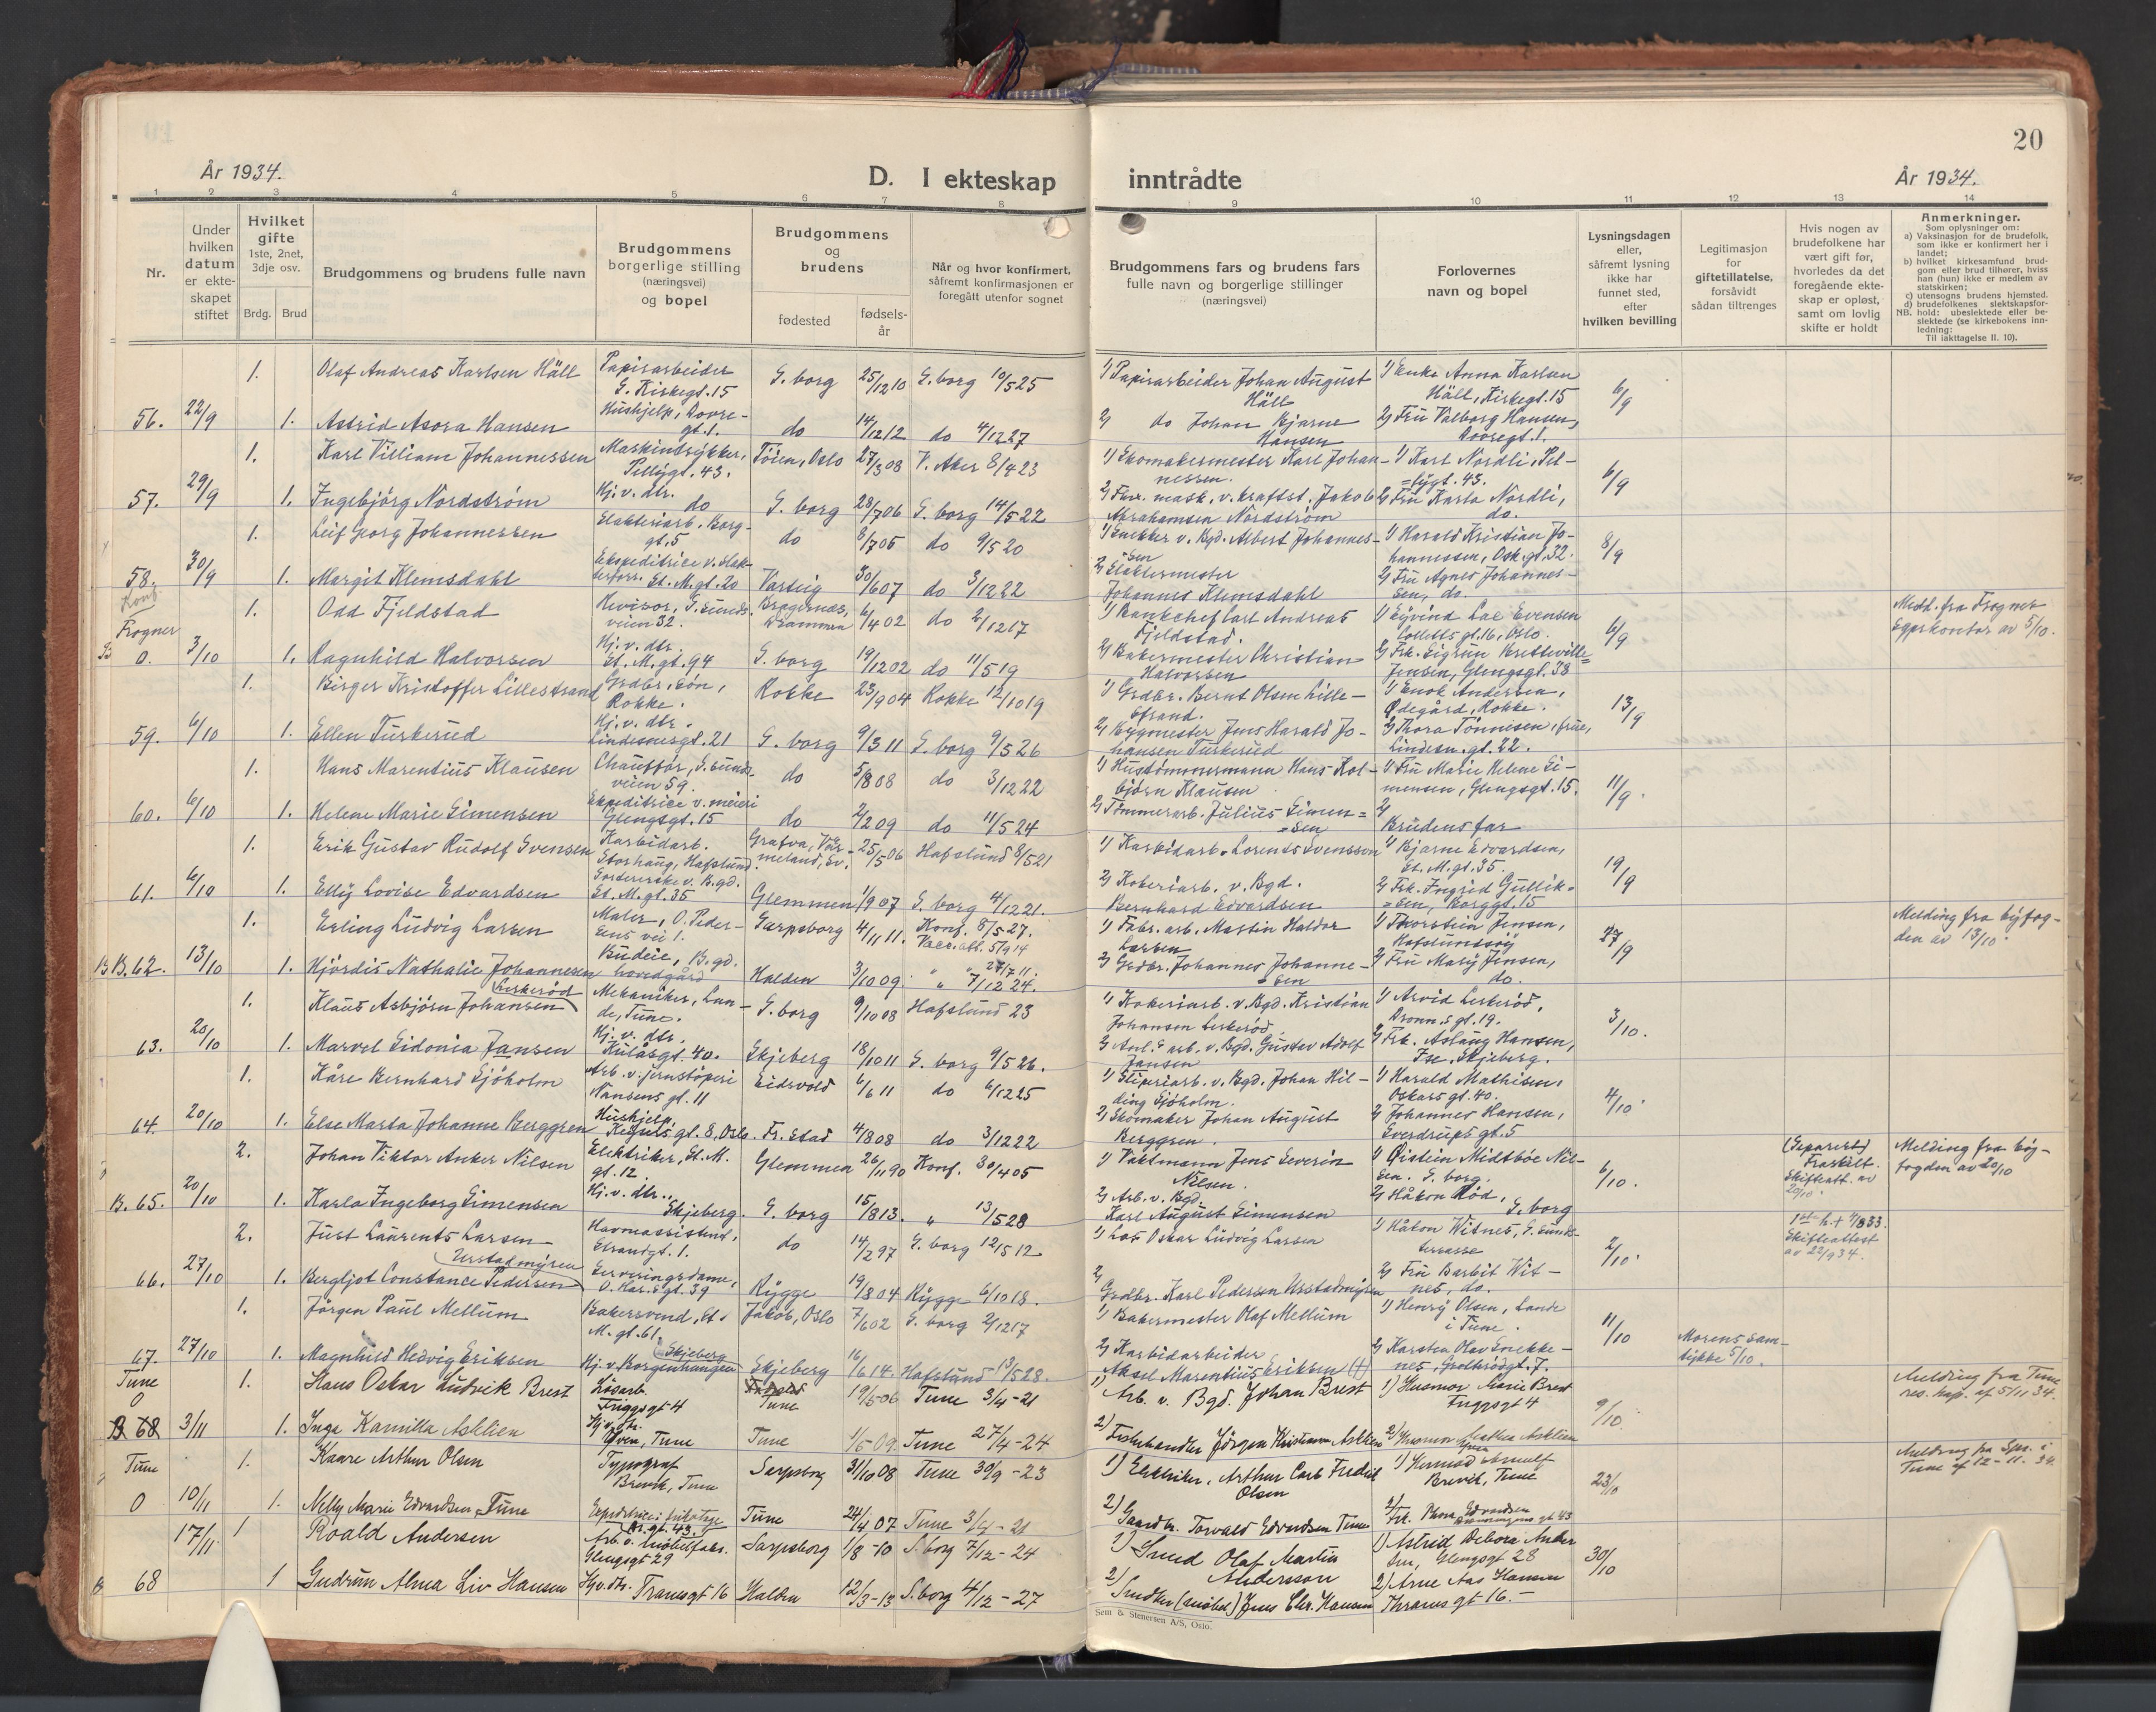 20
År 1934.
D. I ekteskap
inntrådte
År 1934.
1 2 3 4 5 6 7 8 9 10 11 12 13 14
Nr.
Under hvilken datum er ekteskapet stiftet
Hvilket gifte
1ste, 2net, 3dje osv.
Brdg. Brud
Brudgommens og brudens fulle navn
Brudgommens borgerlige stilling (næringsvei) og bopel
Brudgommens og brudens
fødested
fødselsår
Når og hvor konfirmert, såfremt konfirmasjonen er foregått utenfor sognet
Brudgommens fars og brudens fars fulle navn og borgerlige stillinger (næringsvei)
Forlovernes navn og bopel
Lysningsdagen eller, såfremt lysning ikke har funnet sted, efter hvilken bevilling
Legitimasjon for giftetillatelse, forsåvidt sådan tiltrenges
Hvis nogen av brudefolkene har vært gift før, hvorledes da det foregående ekteskap er opløst, samt om lovlig skifte er holdt
Anmerkninger.
Som oplysninger om:
a) Vaksinasjon for de brudefolk, som ikke er konfirmert her i landet;
b) hvilket kirkesamfund brudgom eller brud tilhører, hviss han (hun) ikke er medlem av statskirken;
c) utensogns brudens hjemsted.
d) brudefolkenes slektskapsforhold: ubeslektede eller beslektede (se kirkebokens innledning:
NB. Til iakttagelse II. 10).
1. Olaf Andreas Karlsen Häll Papirarbeider S. Kirkegt. 15 S. borg 25/12 10 S. borg 10/5 25 1) Papirarbeider Johan August Häll 1) Enke Anna Karlsen Häll, Kirkegt. 15 6/9
56. 22/9 1. Astrid Asora Hansen Hushjelp, Dovregt. 1. do 14/12 12 do 4/12 27 2) do Johan Bjarne Hansen 2) Fru Valborg Hansen, Dovregt. 1.
1. Karl Villiam Johannessen Maskintrykker, Pellygt. 43. Töien, Oslo 27/3 08 V. Aker 8/4 23 1) Skomakermester Karl Johannessen. 1) Karl Nordli, Pellygt. 43. 6/9
57. 29/9 1. Ingebjörg Nordström Hj. v. dtr. do S. borg 28/7 06 S. borg 14/5 22 2) mask. v. kraftst. Jakob Abrahamsen Nordström 2) Fru Karla Nordli, do.
1. Leif Georg Johannessen Slakteriarb. Borggt. 5 do 8/7 05 do 9/5 20 1) Snekker v. Bgd. Albert Johannessen 1) Harald Kristian Johannessen, Osk. gt. 32. 8/9
58. 30/9 1. Margit Klemsdahl Ekspeditrice v. slakterforr. St. M. gt. 20 Varteig 30/6 07 do 3/12 22 2) Slaktermester Johannes Klemsdahl 2) Fru Agnes Johannessen, do.
Frogner
1. Odd Fjeldstad Revisor, S. sundsveien 32. Bragernes, Drammen 6/4 02 do 2/12 17 1) Bankchef Carl Andreas Fjeldstad. 1) Eyvind Lae Evensen Colletts gt. 16, Oslo. 6/9 Medd. fra Frogner Sgprkontor av 5/10.
0. 3/10 1. Ragnhild Halvorsen Hj. v. dtr. St. M. gt. 94 S. borg 19/12 02 do 11/5 19 2) Bakermester Christian Halvorsen 2) Frk. Sigrun Jensen, Glengsgt. 38
1. Birger Kristoffer Lillestrand Grdbr. Rokke. Rokke 23/9 04 Rokke 12/10 19 1) Grdbr. Bernt Olsen Lillestrand. 1) Enok Andersen, Ødegård, Rokke. 13/9
59. 6/10 1. Ellen Turkerud Hj. v. dtr. Lindesnesgt. 21 S. borg 9/3 11 S. borg 9/5 26 2) Bygmester Jens Harald Johansen Turkerud 2) Thora Tönnisen, frue, Lindesn. gt. 22.
1. Hans Marentius Klausen Chauffør, S. sundsveien 59. do 5/8 08 do 3/12 22 1) Hustömmermann Hans Kolbjörn Klausen 1) Fru Marie Helene Simensen, Glengsgt. 15. 11/9.
60. 6/10 1. Helene Marie Simensen Ekspeditrice v. meieri Glengsgt. 15 do 2/2 09 do 11/5 24 2) Tömmerarb. Julius Simensen 2) Brudens far
1. Erik Gustav Rudolf Svensen Karbidarb. Storhaug, Hafslund Grafva, Vermeland, Sv. 25/5 06 Hafslund 8/5 21 1) Karbidarb. Lorents Svensson 1) Bjarne Edvardsen, St. M. gt. 35. 19/9
61. 6/10 1. Elly Lovise Edvardsen Sorterske v. B.gd. St. M. gt. 35 Glemmen 1/9 07 S. borg 4/12 21. 2) Kokeriarb. v. Bgd. Bernhard Edvardsen 2) Frk. Ingrid Gulliksen, Borggt. 15
1. Erling Ludvig Larsen Maler, O. Pedersens vei 1. Sarpsborg 4/11 11. Konf. 8/5 27. Vacc. att. 5/9 14 1) Fabr. arb. Martin Haldor Larsen 1) Thorstein Jensen, Hafslundsöy 27/9 Melding fra byfogden av 13/10.
B. 62. 13/10 1. Hjördis Nathalie Johannesen Budeie, B.gd. hovedgård Halden 3/10 09. " " 27/7 11. 7/12 24. 2) Grdbr. Johannes Johannessen 2) Fru Mary Jensen, do.
1. Klaus Asbjörn Johansen Lerkeröd Mekaniker, Lande, Tune. S. borg 9/10 08 Hafslund 23 1) Kokeriarb. v. Bgd. Kristian Johansen Lerkeröd 1) Arvid Lerkeröd, Dronn. s gt. 19. 3/10.
63. 20/10 1. Marvel Sidonia Jansen Hj. v. dtr. Kulåsgt. 40. Skjeberg 18/10 11 S. borg 9/5 26. 2) Anl.s arb. v. Bgd. Gustav Adolf Jansen 2) Frk. Aslaug Hansen, Ise, Skjeberg.
1. Kåre Bernhard Sjöholm Arb. v. jernstöperi Nansens gt. 11 Eidsvold 6/6 11 do 6/12 25 1) Sliperiarb. v. Bgd. Johan Hilding Sjöholm. 1) Harald Mathisen, Oskars gt. 40. 4/10
64. 20/10 1. Else Marta Johanne Berggren Hushjelp, gt. 8, Oslo. Fr. stad 4/8 08 do 3/12 22 2) Skomaker Johan August Berggren. 2) Johannes Hansen, Sverdrups gt. 5
2. Johan Viktor Anker Nilsen Elektriker, St. M. gt. 12. Glemmen 26/11 90 Konf. 30/4 05 1) Vaktmann Jens Severin Nilsen. 1) Øistein Midtböe Nilsen. S. borg. 6/10. (Separert) Fraskilt. Skifteatt. av 20/10. Melding fra byfogden av 20/10
B. 65. 20/10 1. Karla Ingeborg Simensen Hj. v. dtr., Skjeberg. S. borg 15/8 13. " 13/5 28 2) Arb. v. Bgd. Karl August Simensen 2) Håkon Röd, S. borg
2. Just Laurents Larsen Havneassistent, Strandgt. 1. do 14/2 97 S. borg 12/5 12 1) Los Oskar Ludvig Larsen 1) Håkon Witnes, S. sundsterrasse 2/10. 1ste h. † 4/8 33. Skifteattest av 22/9 34.
66. 27/10 1. Bergljot Constance Pedersen Urstadmyren Serveringsdame, O. Har. s gt. 39 Rygge 19/8 04 Rygge 6/10 18. 2) Grdbr. Karl Pedersen Urstadmyren 2) Fru Barbit Witnes, do.
1. Jörgen Paul Mellum Bakersvend, St. M. gt. 61. Jakob, Oslo 7/6 02 S. borg 2/12 17 1) Bakermester Olaf Mellum 1) Henry Olsen, Lande i Tune. 11/10
67. 27/10 1. Magnhild Hedvig Eriksen Hj. v. Borgenhaugen Skjeberg Skjeberg 16/6 14. Hafslund 13/5 28. 2) Karbidarbeider Aksel Marentius Eriksen (†) 2) Karsten Olav Snekkenes, gt. 7. Morens samtykke 5/10.
Tune 0
1. Hans Oskar Ludvik Brest Lösarb. Fuggsgt 4 Tune 19/5-06 Tune 3/4-21 1) Arb. v. Bgd. Johan Brest 1) Husmor Marie Brest Fuggsgt 4 9/10. Melding fra Tune res. kap. af 5/11 34.
B 68 3/11 1. Inga Kamilla Asklien Hj. v. dtr. Tune Tune 1/5-09. Tune 27/4-24 2) Fiskehandler Jörgen Kristiansen Asklien 2) Husmor Mathea Asklien
Tune 1. Kaare Arthur Olsen Typograf Brevik, Tune Sarpsborg 31/10 08 Tune 30/9-23 1) Elektriker, Arthur Carl Fredrik Olsen 1) Brevik, Tune 23/10 Melding fra Spr. i Tune af 12-11. 34.
0 10/11 1. Nelly Marie Edvardsen, Tune gt. 43. Tune 24/4 07 Tune 3/4-21 2) Gaardbr. Torvald Edvardsen Tune 2) Frk. Edvardsen gt 43
17/11 1 Roald Andersen Arb. v. möbelfabr. Glengsgt 29 Sarpsborg 1/8-10 S. borg 7/12-24 1) Smed Olaf Martin Andersson 1) Astrid Debora Andersen, Glengsgt 28 30/10
68 1 Gudrun Alma Liv Hansen Hj. v. dtr. Tranesgt 16 Halden 12/3-13 S. borg 4/12-27 2) Snedker (möbel) Jens Chr. Hansen 2) Arne Aas Hansen Thranes gt 16.-
Sem & Stenersen A/S, Oslo.